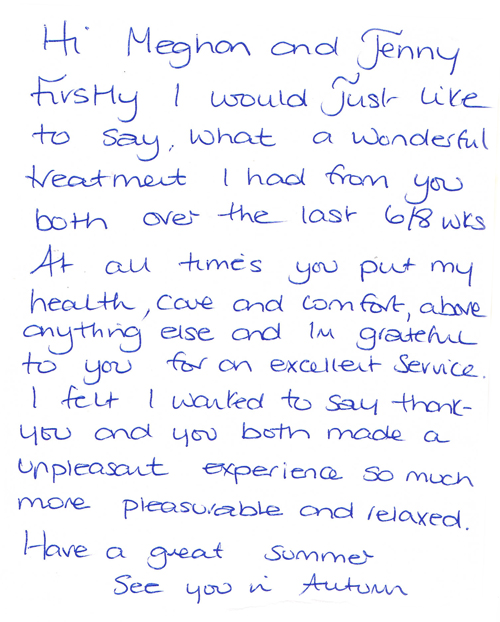 Hi Meghan and Jenny
Firstly I would Just like
to say, what a wonderful
treatment I had from you
both over the last 6/8 wks
At all times you put my
health, care and comfort, above
anything else and Im grateful
to you for an excellent service.
I felt I wanted to say thank-
you and you both made a
unpleasant experience so much
more pleasurable and relaxed.
Have a great summer
See you in Autumn